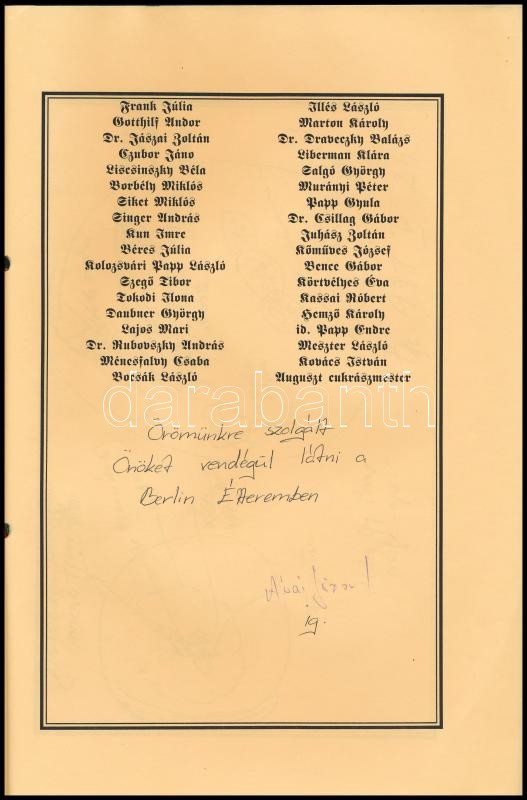 Frank Júlia
Gotthilf Andor
Dr. Jászai Zoltán
Czubor Jáno
Liscsinszky Béla
Borbély Miklós
Siket Miklós
Singer András
Kun Imre
Béres Júlia
Kolozsvári Papp László
Szegő Tibor
Tokodi Ilona
Daubner György
Lajos Mari
Dr. Rubovszky András
Ménesfalvy Csaba
Borsák László
Illés László
Marton Károly
Dr. Draveczky Balázs
Liberman Klára
Salgó György
Murányi Péter
Papp Gyula
Dr. Csillag Gábor
Juhász Zoltán
Kőműves József
Bence Gábor
Körtvélyes Éva
Kassai Róbert
Hemző Károly
id. Papp Endre
Meszter László
Kovács István
Auguszt cukrászmester
darabanth
Örömünkre szolgált
Önöket vendégül látni a
Berlin Étteremben
ig.